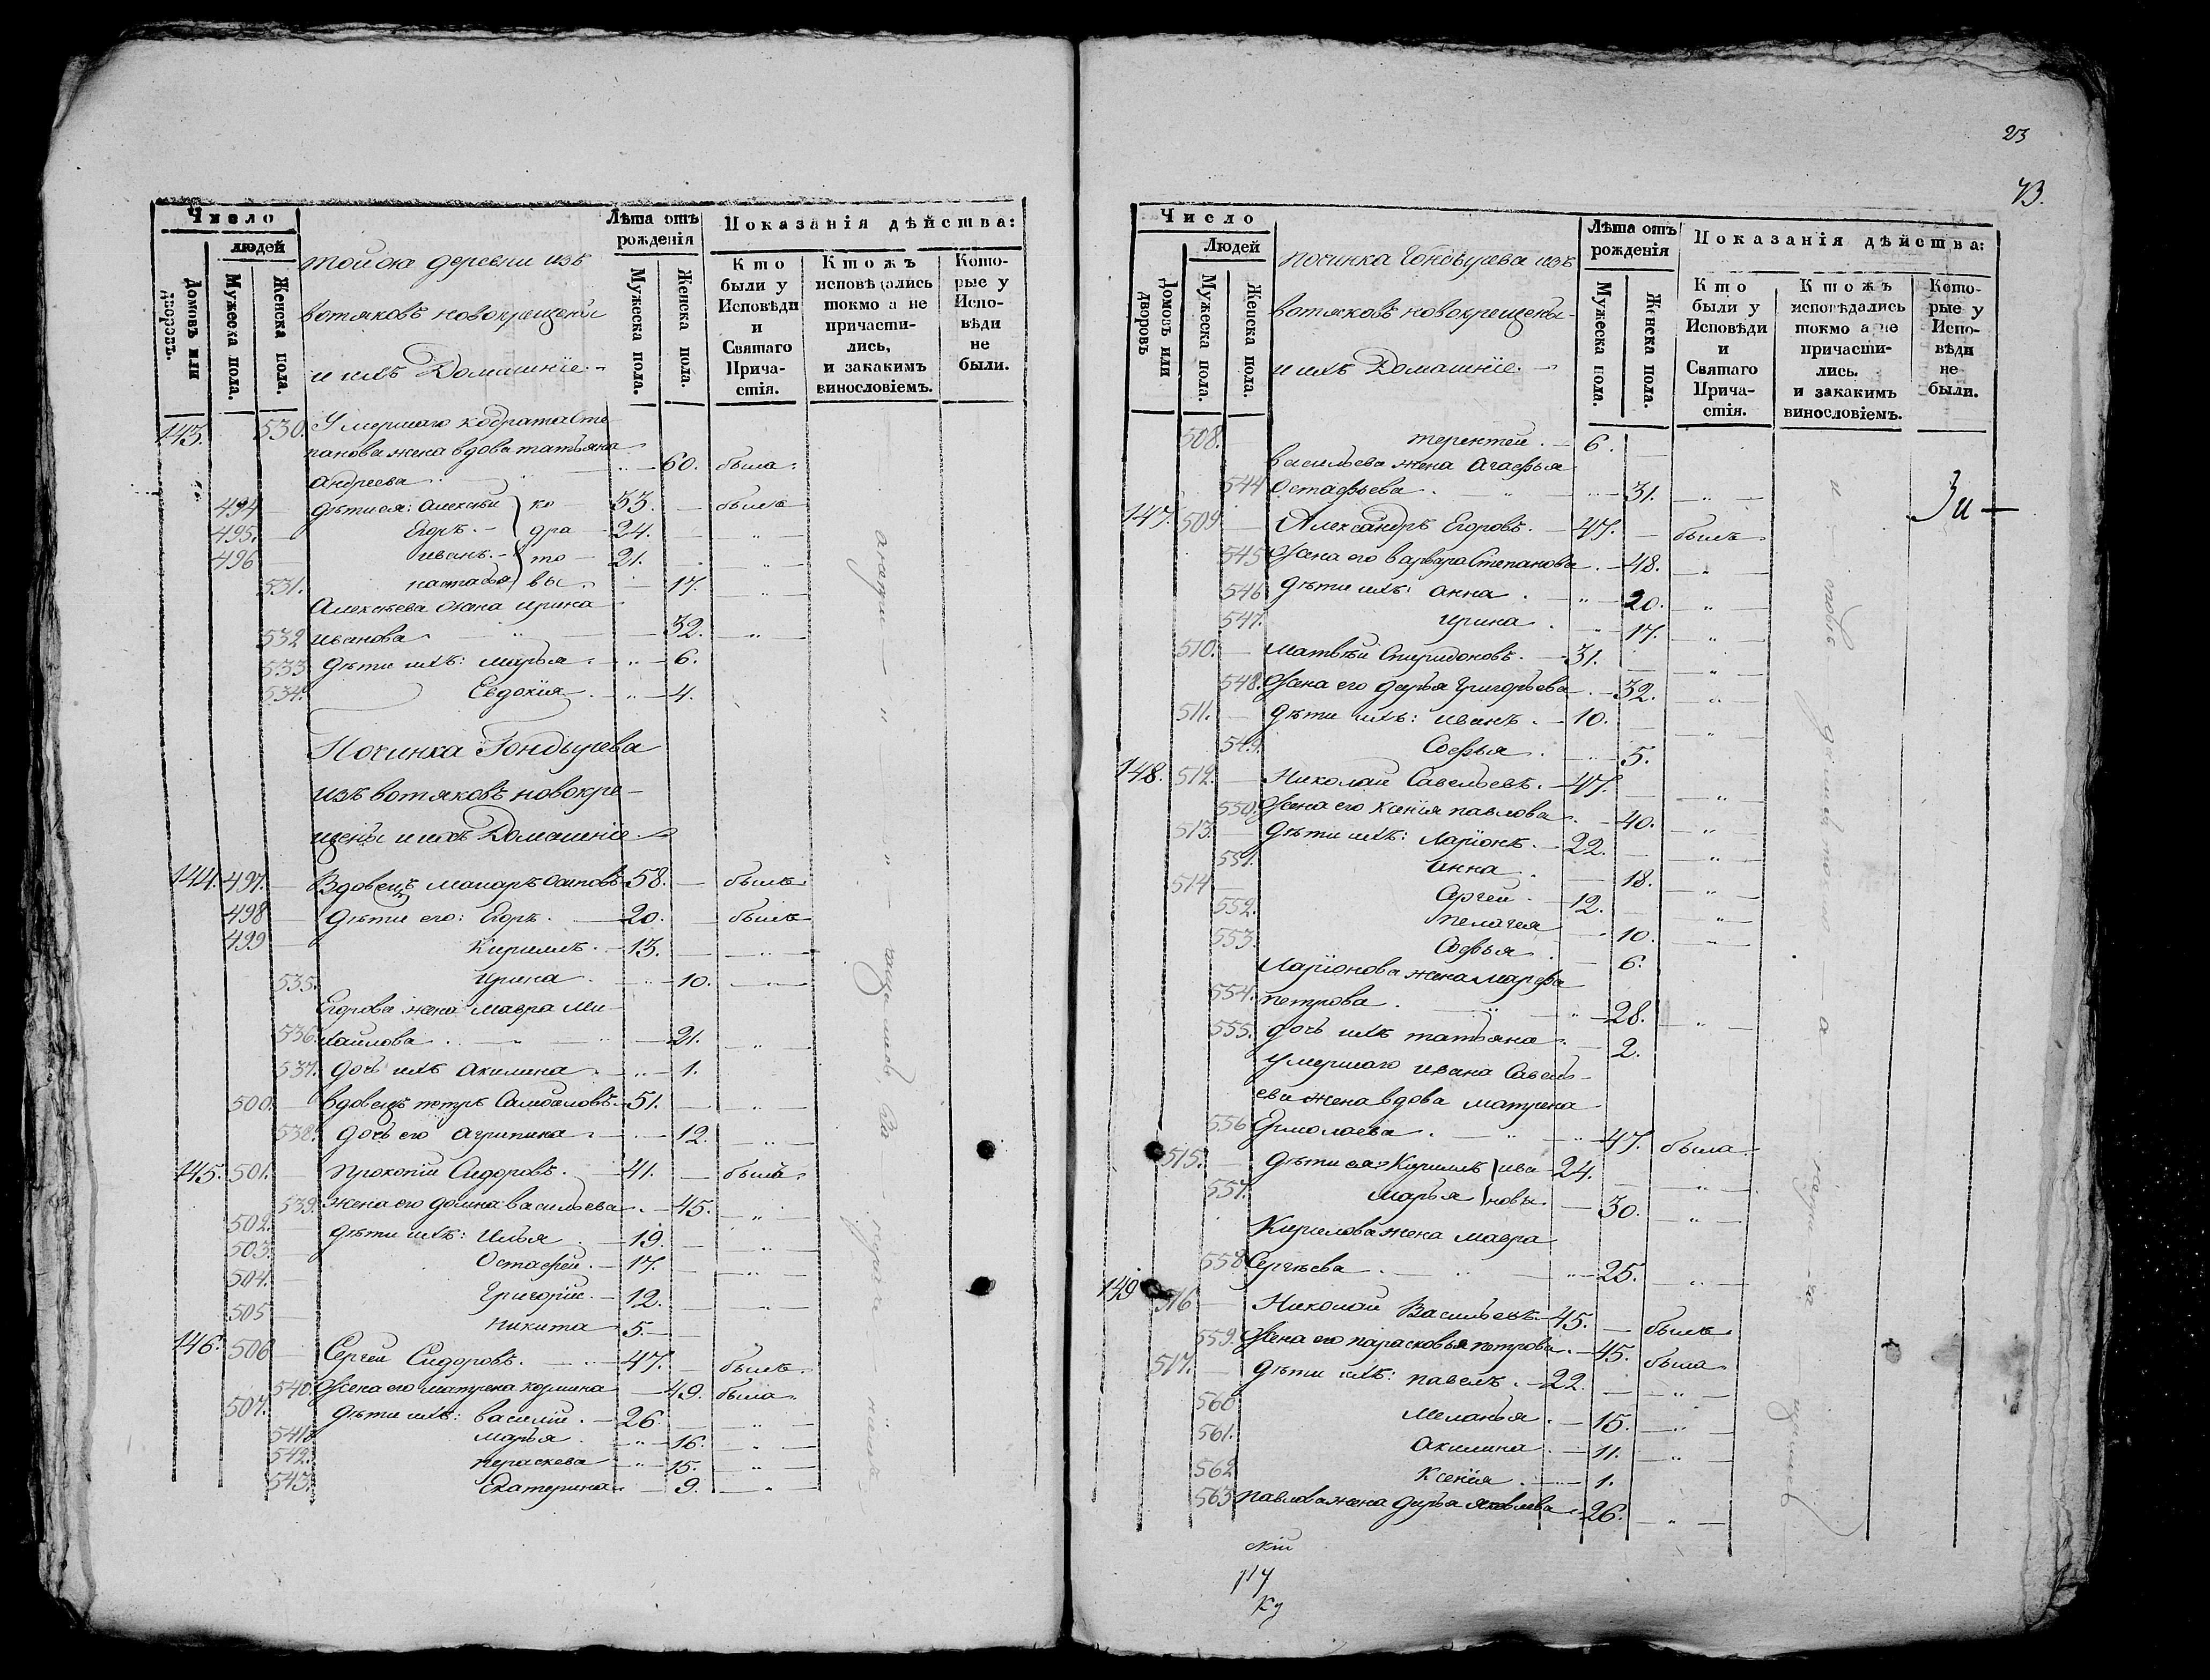 Число
людей
Домовъ или дворовъ.
Мужеска пола.
Женска пола.
тойже деревни изъ
вотяковъ новокрещены
и ихъ Домашнїе.
Лѣта отъ рожденія
Мужеска пола.
Женска пола.
Показанія дѣйства:
Кто были у Исповѣди и Святаго Причастія.
Ктожъ исповѣдались токмо а не причастились, и закакимъ винословіемъ.
Которые у Исповѣди не были.
143. 530. Умершаго кодрата Сте
панова жена вдова татьяна
андреева 60. была.
494 дѣти ея: Алексѣй ко 33. былъ
495. Егоръ. дра 24. „
496 иванъ. то 21. „
531. настасья вы. 17. „
Алексѣева жена ирина
532 иванова 32. „
533 дѣти ихъ: марья 6.
534. Евдокїя 4.
Починка Гондырева
изъ вотяковъ новокре-
щены и ихъ Домашнїе
144. 497. Вдовецъ макаръ осиповъ 58. былъ
498 дѣти его: Егоръ. 20. былъ
499 Кирилъ. 13. „
535. Ирина 10. „
Егорова жена мавра ми-
536. хаилова 21. „
537. дочь ихъ акилина 1.
500. вдовецъ петръ Самойловъ 51. „
538. дочь его агрипина 12. „
145. 501. Прокопїй Сидоровъ. 41. былъ
539. жена его домна васильева 45. „
502. дѣти ихъ: Илья 19. „
503. Остафей. 17. „
504. Григорїй. 12. „
505 никита 5.
146. 506 Сергей Сидоровъ. 47. былъ
540 Жена его матрена 49. была.
507. дѣти ихъ: василїй. 26. „
541. марья 16. „
542. параскева 15. „
543. Екатерина 9. „
23
73.
Число
Людей
Домовъ или дворовъ
Мужеска пола.
Женска пола.
починка Гондырева изъ
вотяковъ новокрещены-
и ихъ Домашнїе.
Лѣта отъ рожденія
Мужеска пола.
Женска пола.
Показанія дѣйства:
Кто были у Исповѣди и Святаго Причастія.
Ктожъ исповѣдались токмо а не причастились. и закакимъ винословіемъ.
Которые у Исповѣди не были.
508. терентей. 6.
васильева жена агафья
544 Остафьева 31. „
147. 509. Александръ Егоровъ. 47. былъ
545 Жена его варвара Степанова 48. „
546 дѣти ихъ: анна 20. „
547. ирина 17. „
510. матвѣй Спиридоновъ. 31. „
548. Жена его дарья Григорьева 32. „
511. дѣти ихъ: иванъ. 10. „
549. Софья 5.
148. 512. Николай Савельевъ. 47. „
550. Жена его Ксенїя павлова 40. „
513. дѣти ихъ: Ларїонъ. 22. „
551. анна 18. „
514 Сергей 12. „
552. пелагея 10. „
553. Софья 6.
Ларїонова жена марфа
554. петрова. 28. „
555. дочь ихъ татьяна 2.
умершаго ивана Савель-
ева жена вдова матрена
556 Ермолаева. 47. была.
515. дѣти ея: Кирилъ ива 24. „
557. марья новы. 30. „
Кирилова жена мавра
558. Сергѣева 25. „
149 516 Николай Васильевъ 45. былъ
559. Жена его парасковья петрова 45. была
517. дѣти ихъ: павелъ. 22. „
560 меланья 15. „
561. акилина 11. „
562 Ксенїя 1.
563 павлова жена дарья яковлева 26. „